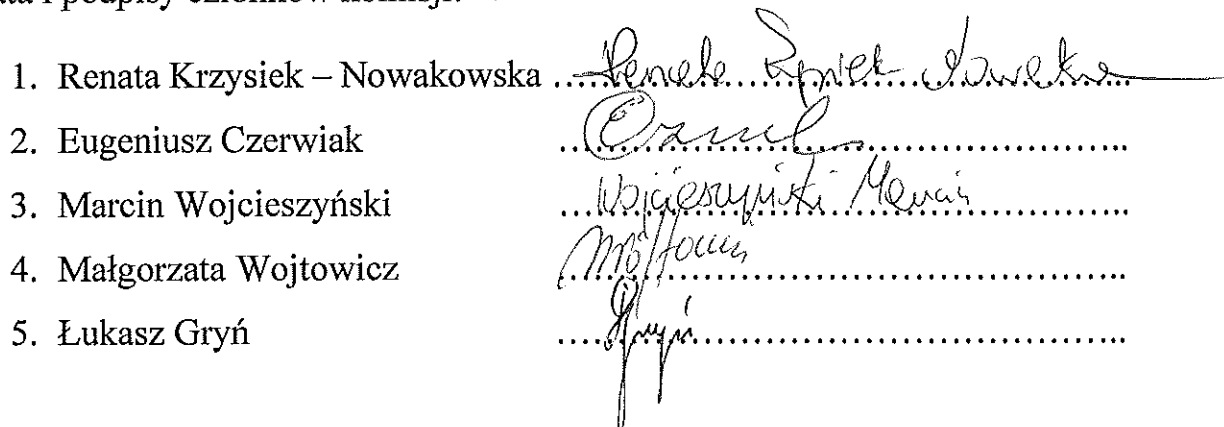 i podpisy członków komisji:
1. Renata Krzysiek – Nowakowska ....Renata Krzysiek Nowakow....
2. Eugeniusz Czerwiak ........
3. Marcin Wojcieszyński ....Wojcieszyński Marcin........
4. Małgorzata Wojtowicz ........
5. Łukasz Gryń ....Gryń........